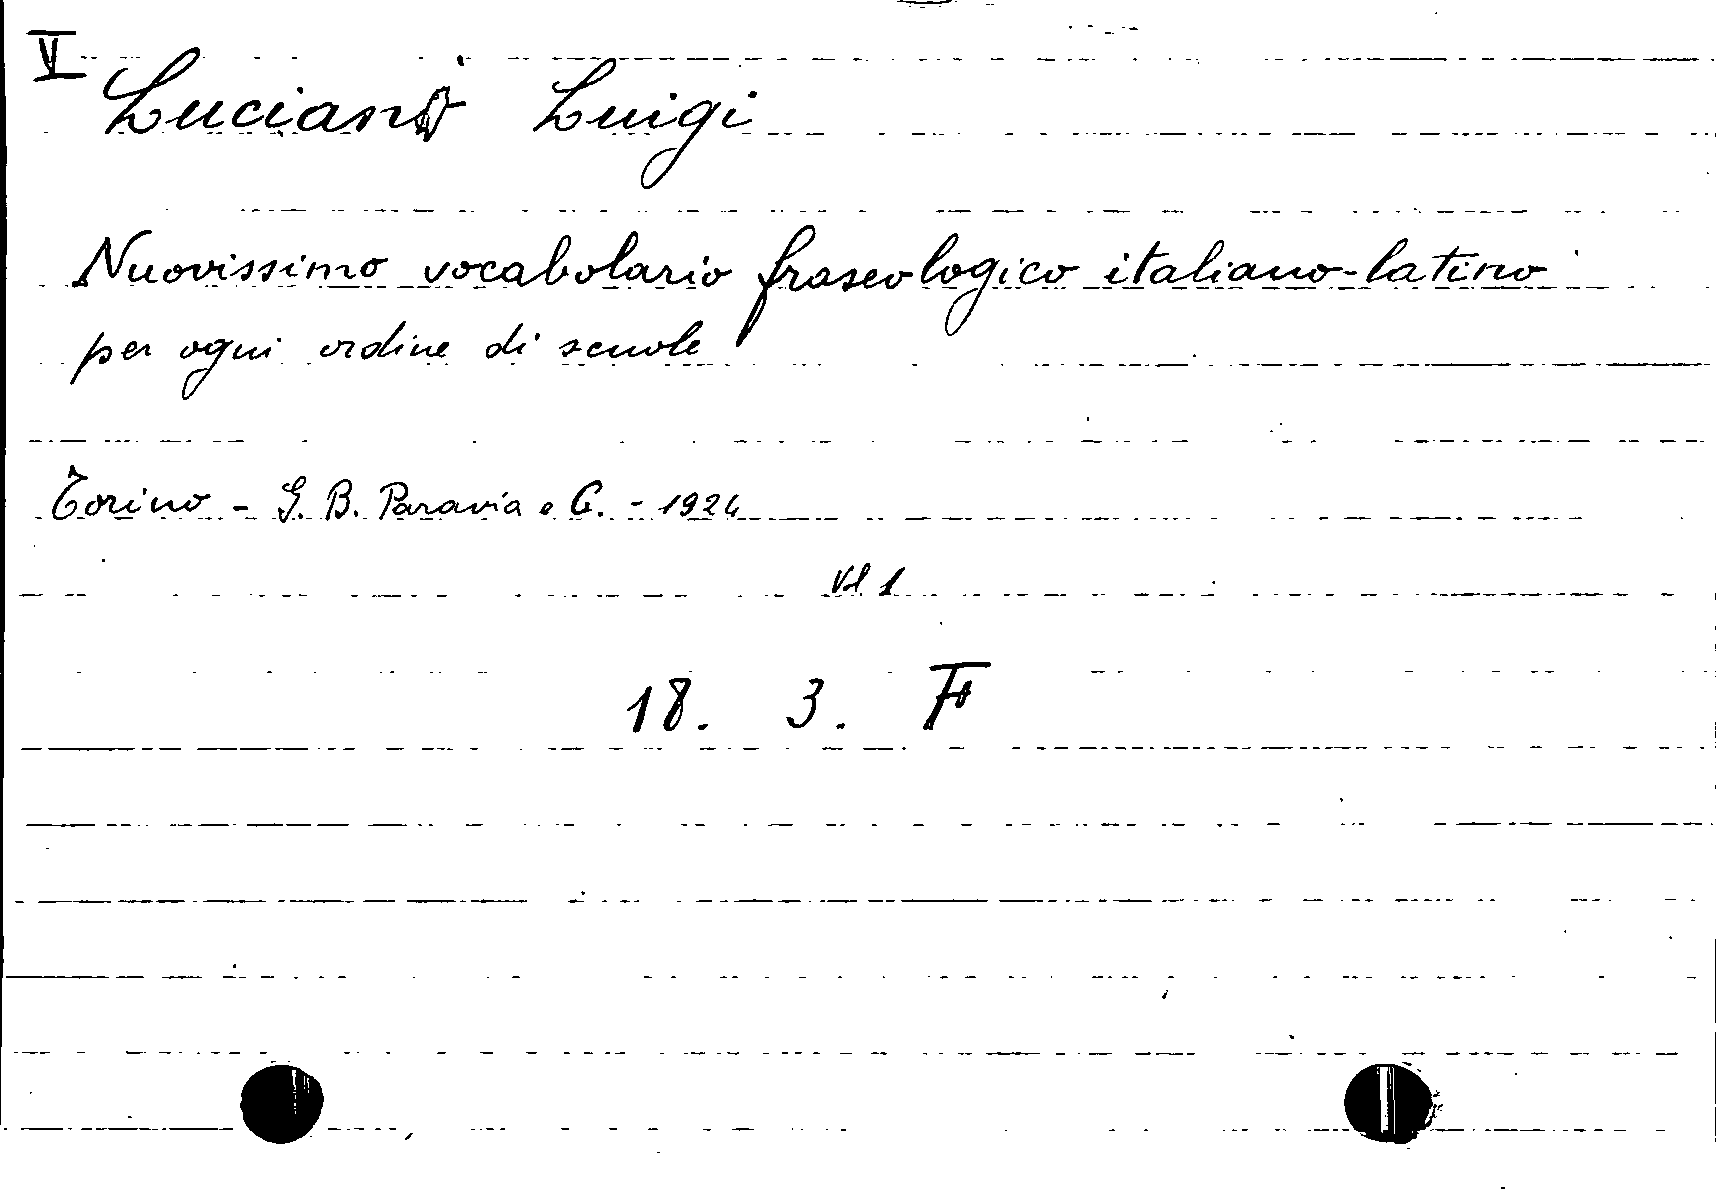 V
Luciano Luigi
Nuovissimo vocabolario fraseologico italiano-latino
per ogni ordine di scuole
Torino - G. B. Paravia e C. - 1924
Vol 1
18. 3. F